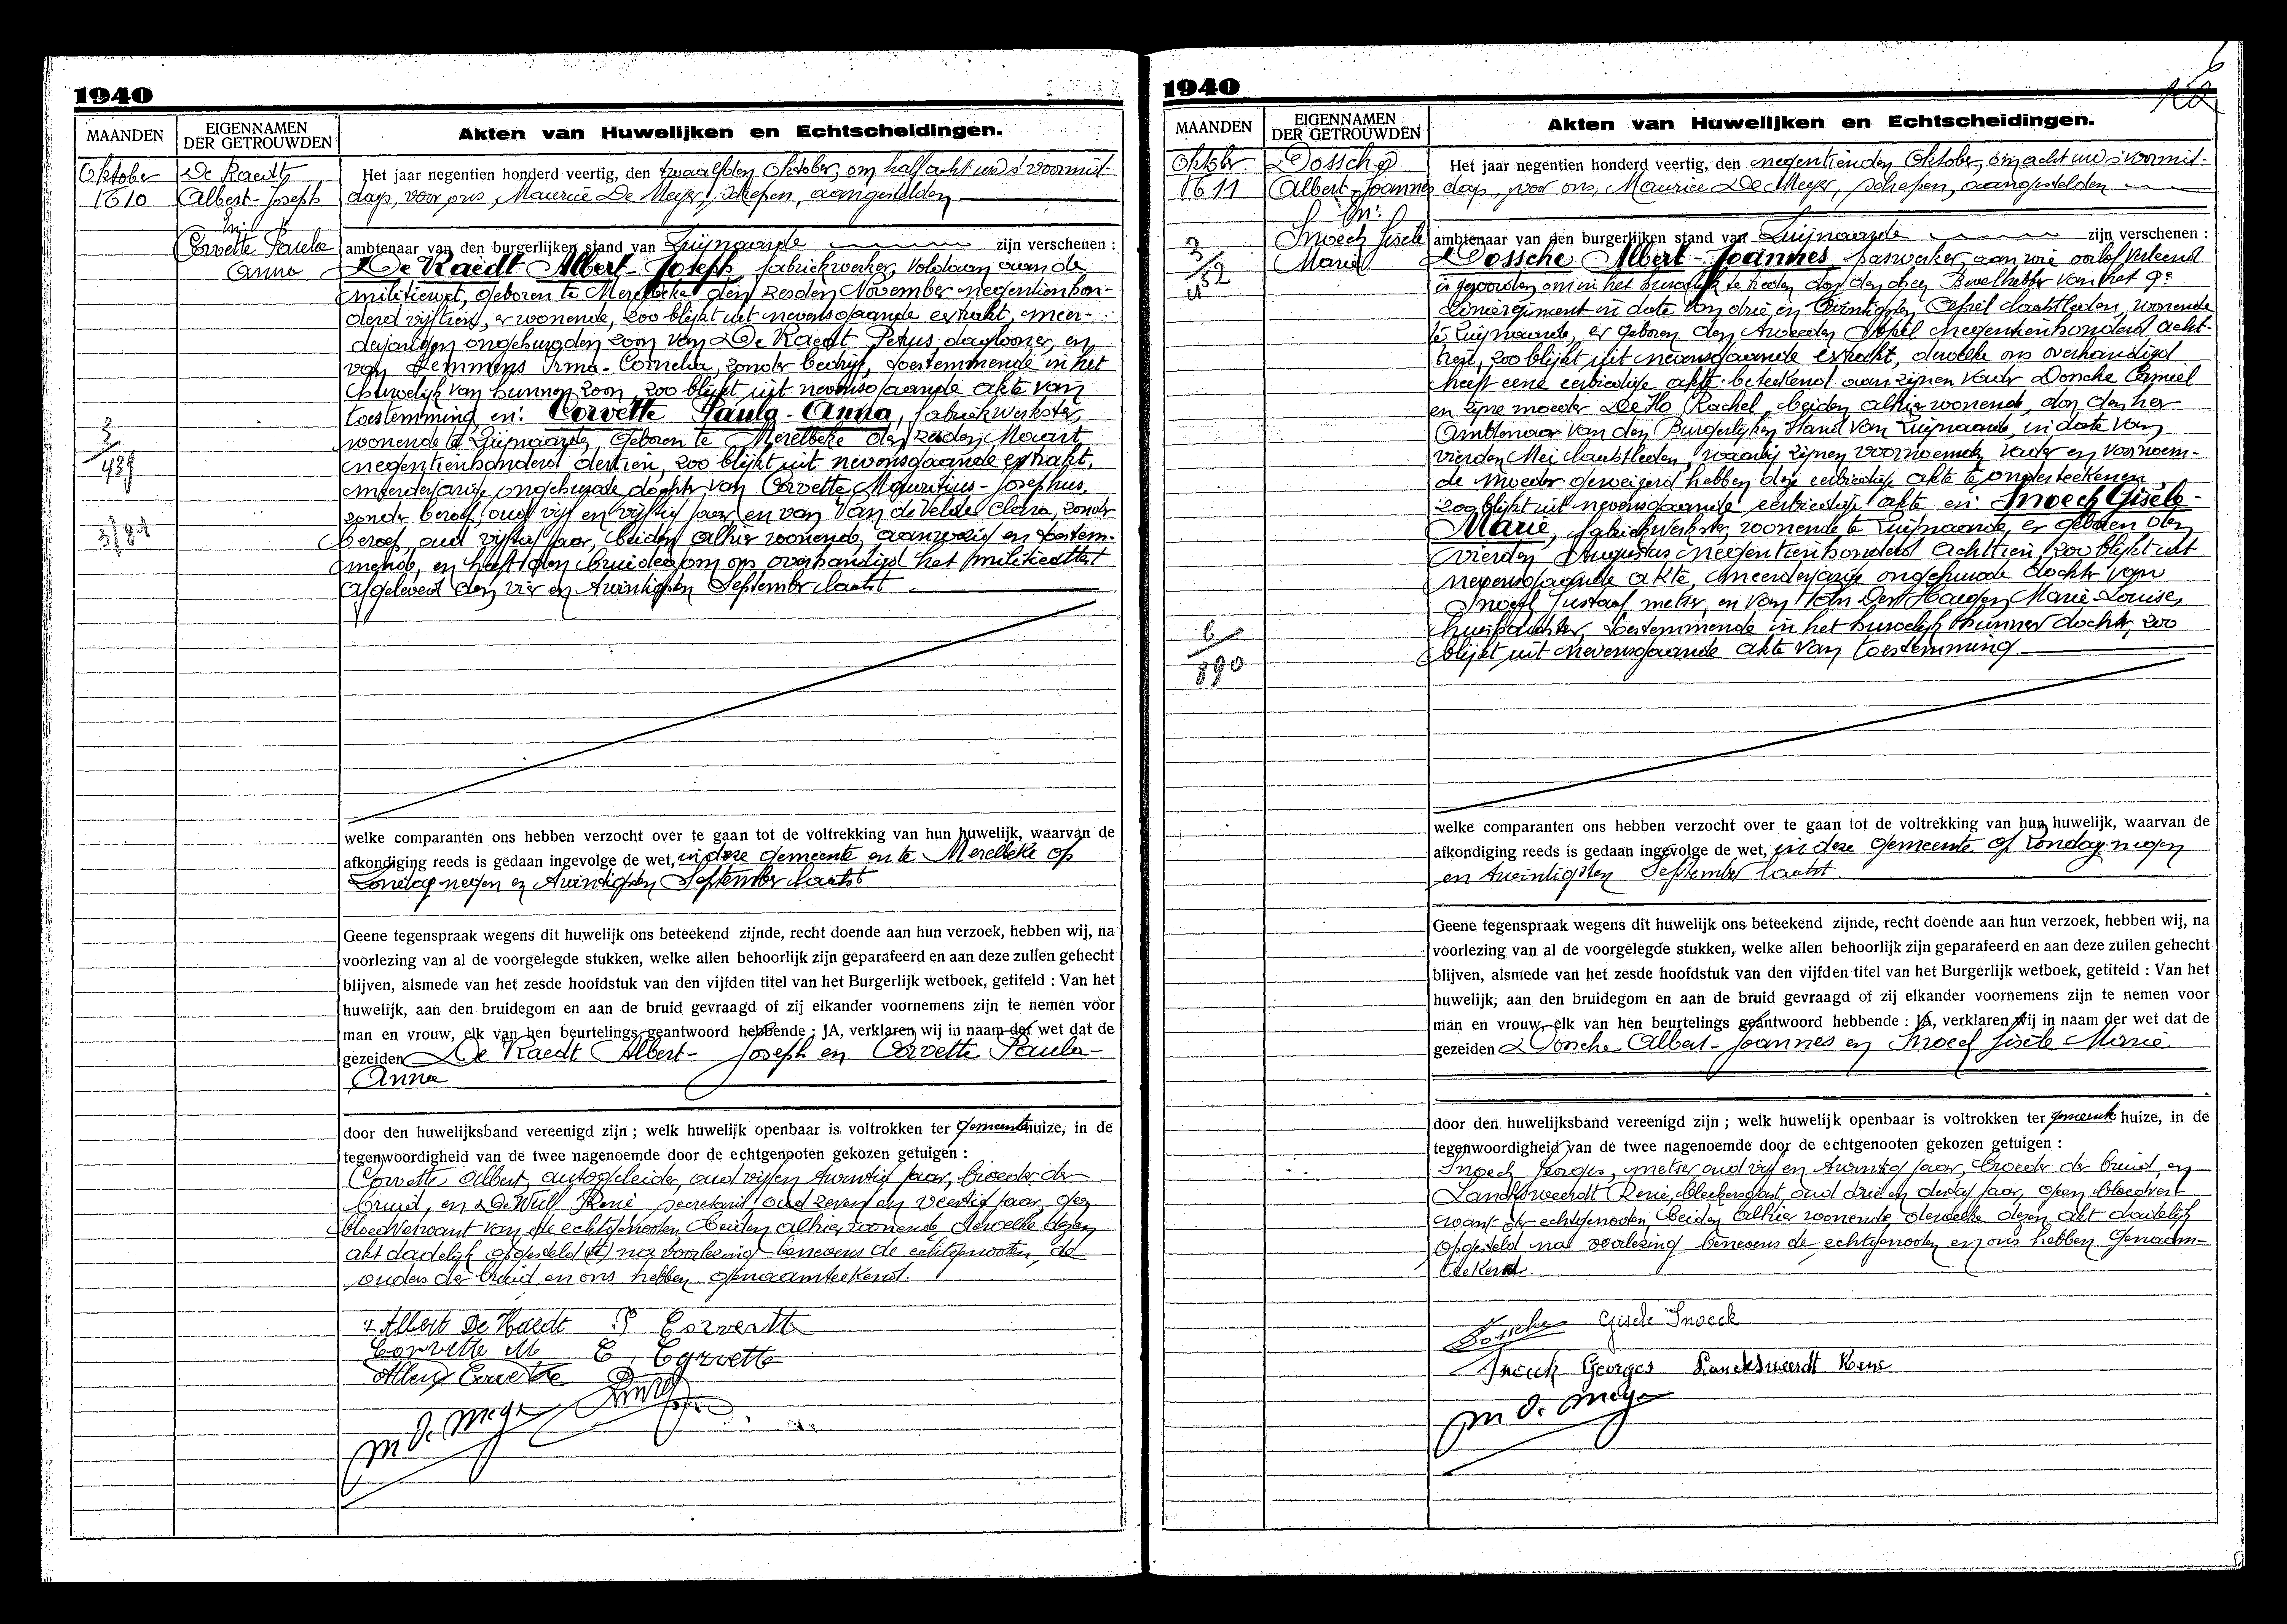 1940
MAANDEN
EIGENNAMEN
DER GETROUWDEN
Akten van Huwelijken en Echtscheidingen.
Oktober
De Raedt
Albert-Joseph
En:
Corvette Paula
Anna
Het jaar negentien honderd veertig, den twaalfden Oktober, om half acht uur 's voormid-
dags, voor ons, Maurice De Meyer, schepen, aangestelden
ambtenaar van den burgerlijken stand van Zwijnaarde zijn verschenen :
De Raedt Albert-Joseph, fabriekwerker, voldaan aan de
militiewet, geboren te Merelbeke den zesden November negentienhon-
derd vijftien, er wonende, zoo blijkt uit nevensgaande extrakt, meer-
derjarigen ongehuwden zoon van De Raedt Petrus, daglooner, en
van Lemmens Irma-Cornelia, zonder bedrijf, toestemmende in het
huwelijk van hunnen zoon, zoo blijkt uit nevensgaande akte van
toestemming en: Corvette Paula-Anna, fabriekwerkster,
wonende te Zwijnaarde, geboren te Merelbeke den zesden Maart
negentienhonderd dertien, zoo blijkt uit nevensgaande extrakt,
meerderjarige ongehuwde dochter van Corvette Mauritius-Josephus,
zonder beroep, oud vijf en vijftig jaar en van Van de Velde Clara, zonder
beroep, oud vijftig jaar, beiden alhier wonende, aanwezig en toestem-
mende, en heeft den bruidegom ons overhandigd het militieattest
afgeleverd den vier en twintigsten September laatst
3/
439
3/81
welke comparanten ons hebben verzocht over te gaan tot de voltrekking van hun huwelijk, waarvan de
afkondiging reeds is gedaan ingevolge de wet, in deze gemeente en te Merelbeke op
Zondag negen en twintigsten September laatst
Geene tegenspraak wegens dit huwelijk ons beteekend zijnde, recht doende aan hun verzoek, hebben wij, na
voorlezing van al de voorgelegde stukken, welke allen behoorlijk zijn geparafeerd en aan deze zullen gehecht
blijven, alsmede van het zesde hoofdstuk van den vijfden titel van het Burgerlijk wetboek, getiteld : Van het
huwelijk, aan den bruidegom en aan de bruid gevraagd of zij elkander voornemens zijn te nemen voor
man en vrouw, elk van hen beurtelings geantwoord hebbende ; JA, verklaren wij in naam der wet dat de
gezeiden De Raedt Albert-Joseph en Corvette Paula-
Anna
door den huwelijksband vereenigd zijn ; welk huwelijk openbaar is voltrokken ter gemeentehuize, in de
tegenwoordigheid van de twee nagenoemde door de echtgenooten gekozen getuigen :
Corvette Albert, autogeleider, oud vijf en twintig jaar, broeder der
bruid, en De Wulf René, secretaris oud zeven en veertig jaar, geen
bloedverwant van de echtgenooten, beiden alhier wonende, dewelke dezen
akt dadelijk opgesteld na voorlezing benevens de echtgenooten, de
ouders der bruid en ons hebben genaamteekend.
Albert De Raedt P Corvertte
Corvette M C. Corvette
Albert Corvette
M D. Meyer
1940
MAANDEN
EIGENNAMEN
DER GETROUWDEN
Akten van Huwelijken en Echtscheidingen.
Oktober
Dossche
Albert-Joannes
En:
Snoeck Gisèle
Marie
Het jaar negentien honderd veertig, den negentienden Oktober, om acht uur 's voormid-
dags, voor ons, Maurice De Meyer, schepen, aangestelden
ambtenaar van den burgerlijken stand van Zwijnaarde zijn verschenen :
Dossche Albert-Joannes, paswerker, aan wie oorlof verleend
is geworden om in het huwelijk te treden door den heer Bevelhebber van het 9e
Linieregiment in date van drie en twintigsten April laatstleden, wonende
te Zwijnaarde, er geboren den tweeden April negentienhonderd acht-
tien, zoo blijkt uit nevensgaande extrakt, dewelke ons overhandigd
heeft eene eerbiedige akte beteekend aan zijnen vader Dossche Camiel
en zijne moeder De Ko Rachel, beiden alhier wonende, door den heer
Ambtenaar van den Burgerlijken Stand van Zwijnaarde, in date van
vierden Mei laatstleden, waarbij zijnen voornoemden vader en voornoem-
de moeder geweigerd hebben deze eerbiedige akte te onderteekenen
zoo blijkt uit nevensgaande eerbiedige akte en: Snoeck Gisèle-
Marie, fabriekwerkster, wonende te Zwijnaarde, er geboren den
vierden Augustus negentienhonderd achttien, zoo blijkt uit
nevensgaande akte, meerderjarige ongehuwde dochter van
Snoeck Gustaaf metser, en van Van Der Haegen Marie-Louise,
huishoudster, toestemmende in het huwelijk hunner dochter, zoo
blijkt uit nevensgaande akte van toestemming
6/
890
welke comparanten ons hebben verzocht over te gaan tot de voltrekking van hun huwelijk, waarvan de
afkondiging reeds is gedaan ingevolge de wet, in deze gemeente op Zondag negen
en twintigsten September laatst
Geene tegenspraak wegens dit huwelijk ons beteekend zijnde, recht doende aan hun verzoek, hebben wij, na
voorlezing van al de voorgelegde stukken, welke allen behoorlijk zijn geparafeerd en aan deze zullen gehecht
blijven, alsmede van het zesde hoofdstuk van den vijfden titel van het Burgerlijk wetboek, getiteld : Van het
huwelijk; aan den bruidegom en aan de bruid gevraagd of zij elkander voornemens zijn te nemen voor
man en vrouw, elk van hen beurtelings geantwoord hebbende : JA, verklaren wij in naam der wet dat de
gezeiden Dossche Albert-Joannes en Snoeck Gisèle Marie
door den huwelijksband vereenigd zijn ; welk huwelijk openbaar is voltrokken ter gemeente huize, in de
tegenwoordigheid van de twee nagenoemde door de echtgenooten gekozen getuigen :
Snoeck Georges, metser oud vijf en twintig jaar, broeder der bruid, en
Lancksweerdt René, bleekersgast, oud drie en dertig jaar, geen bloedver-
want der echtgenooten, beiden alhier wonende, dewelke dezen akt dadelijk
opgesteld na voorlezing benevens de echtgenooten en ons hebben genaam-
teekend.
Dossche Gisele Snoeck
Snoeck Georges Lancksweerdt Rene
M D. Meyer